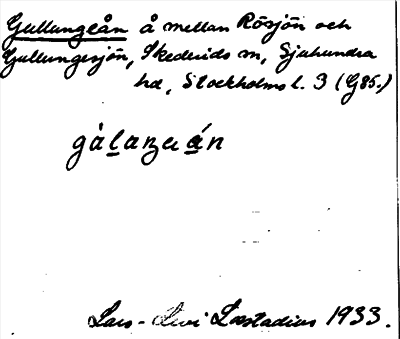 Gullungeån å mellan Rösjön och
Gullungesjön, Skederids sn, Sjuhundra
hd, Stockholms l. 3 (G85.)
gàlaŋeán
Lars-Levi Læstadius 1933.